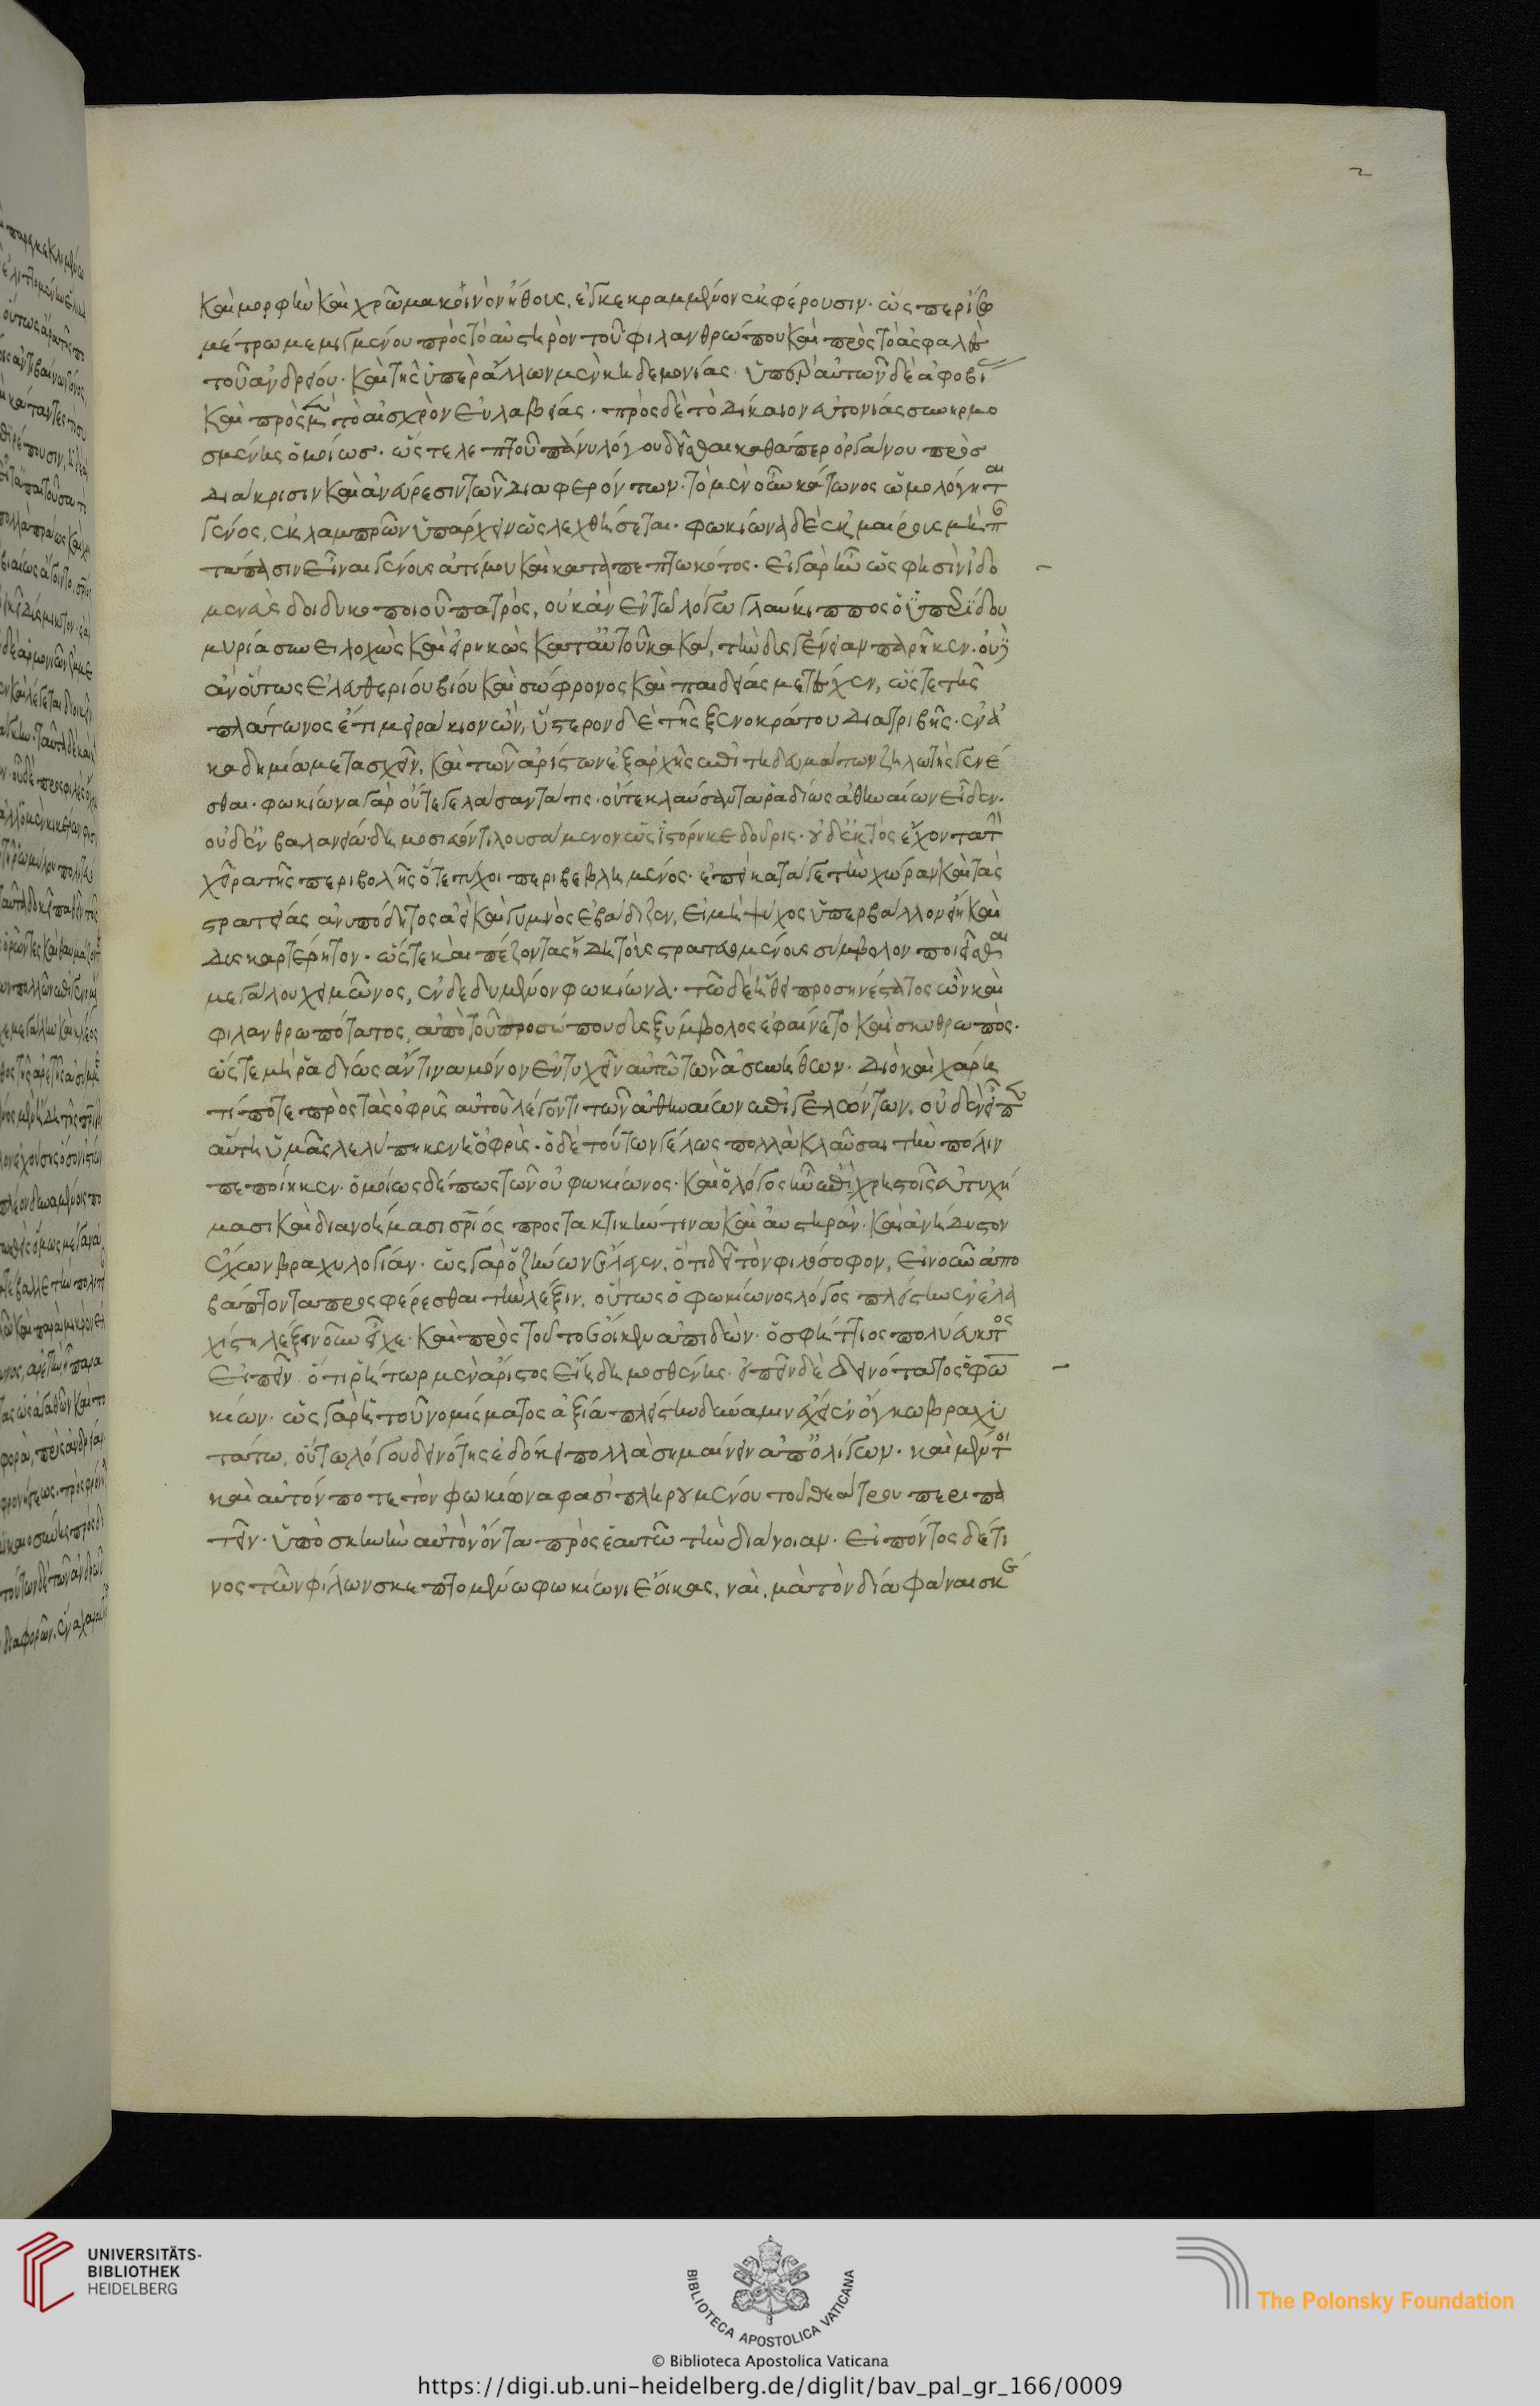 2
καὶ μορφὴν καὶ χρῶμα κοινὸν ἤθους, ἐγκεκραμμένον ἐκφέρουσιν· ὥσπερ ἴσω
μέτρω μεμιγμένου πρὸς τὸ αὐστηρὸν τοῦ φιλανθρώπου καὶ πρὸς τὸ ἀσφαλὲς
τοῦ ἀνδρείου· καὶ τῆς ὑπὲρ ἄλλων μὲν κηδεμονίας· ὑπὲρ αὐτῶν δὲ ἀφοβί
καὶ πρὸς μὲν τὸ αἰσχρὸν εὐλαβείας· πρὸς δὲ τὸ δίκαιον εὐτονίας συνηρμο
σμένης ὁμοίως· ὥστε λεπτοῦ πάνυ λόγου δεῖσθαι καθάπερ ὀργάνου πρὸς
διάκρισιν καὶ ἀνεύρεσιν τῶν διαφερόντων· τὸ μὲν οὖν κάτωνος ὡμολόγηται
γένος, ἐκ λαμπρῶν ὑπάρχειν ὡς λεχθήσεται· φωκίωνα δὲ τεκμαίρομαι μὴ π
ταπασιν εἶναι γένους ἀτίμου καὶ καταπεπτωκότος· εἰ γὰρ ἦν ὥς φησὶν ἰδο
μενεὺς δοιδυκοποιοῦ πατρὸς, οὐκ ἂν ἐν τῶ λόγω γλαύκιππος ὁ ὑπερίδου
μυρία συνειλοχὼς καὶ εἰρηκὼς κατ' αὐτοῦ κακά, τὴν δυσγένειαν παρῆκεν· οὐδ'
ἂν οὕτως ἐλευθερίου βίου καὶ σώφρονος καὶ παιδείας μετέσχεν, ὥστε τῆς
πλάτωνος ἔτι μειράκιον ὢν, ὕστερον δὲ τῆς ξενοκράτου διατριβῆς· ἐν ἀ
καδημία μετασχεῖν, καὶ τῶν ἀρίστων ἐξ ἀρχῆς ἐπιτηδευμάτων ζηλωτὴς γενέ
σθαι· φωκίωνα γὰρ οὔτε γελάσαντά τις· οὔτε κλαύσαντα ῥαδίως ἀθηναίων εἶδεν·
οὐδ' ἐν βαλανείω δημοσιεύοντι λουσάμενον ὡς ἱστόρηκε δοῦρις· οὐδ' ἐκτὸς ἔχοντα τὴν
χεῖρα τῆς περιβολῆς ὅτε τύχοι περιβεβλημένος· ἐπεὶ κατά γε τὴν χώραν καὶ τὰς
στρατείας ἀνυπόδητος ἀεὶ καὶ γυμνὸς ἐβάδιζεν, εἰ μὴ ψύχος ὑπερβάλλον εἴη καὶ
δυσκαρτέρητον· ὥστε καὶ παίζοντας ἤδη τοὺς στρατευομένους σύμβολον ποιεῖσθαι
μεγάλου χειμῶνος, ἐνδεδυμένον φωκίωνα· τῶ δὲ ἤθει προσηνέστατος ὢν καὶ
φιλανθρωπότατος, ἀπὸ τοῦ προσώπου δυσξύμβολος ἐφαίνετο καὶ σκυθρωπὸς·
ὥστε μὴ ῥαδίως ἄν τινα μόνον ἐντυχεῖν αὐτῶ τῶν ἀσυνήθων· διὸ καὶ χάρη
τί ποτε πρὸς τὰς ὀφρῦς αὐτοῦ λέγοντι τῶν ἀθηναίων ἐπιγελώντων, οὐδὲν εἶπεν
αὕτη ὑμᾶς λελύπηκεν ἡ ὀφρὺς· ὁ δὲ τούτων γέλως πολλὰ κλαῦσαι τὴν πόλιν
πεποίηκεν· ὁμοίως δέ πως τῶν οὐ φωκίωνος· καὶ ὁ λόγος ἦν ἐπὶ χρηστοῖς εὐτυχή
μασι καὶ διανοήμασι σωτήριος προστακτικήν τινα καὶ αὐστηρὰν· καὶ ἀνήδυντον
ἔχων βραχυλογίαν· ὡς γὰρ ὁ ζήνων ἔλεγεν, ὅτι δεῖ τὸν φιλόσοφον, εἰς νοῦν ἀπο
βάπτοντα προσφέρεσθαι τὴν λέξιν, οὕτως ὁ φωκίωνος λόγος πλεῖστον ἐν ἐλα
χίστη λέξει νοῦν εἶχε· καὶ πρὸς τοῦτο ἔοικεν ἀπιδὼν· ὁ σφήττιος πολύευκτος
εἰπεῖν ὅτι ῥήτωρ μὲν ἄριστος εἴη δημοσθένης· εἰπεῖν δὲ δεινότατος ὁ φω
κίων· ὡς γὰρ ἡ τοῦ νομίσματος ἀξία πλείστην δύναμιν ἔχει ἐν ὄγκω βραχυ
τάτω, οὕτω λόγου δεινότης ἐδόκει πολλὰ σημαίνειν ἀπ' ὀλίγων· καὶ μέντοι
καὶ αὐτόν ποτε τὸν φωκίωνα φασὶ πληρουμένου τοῦ θεάτρου περιπα
τεῖν· ὑπὸ σκηνὴν αὐτὸν ὄντα πρὸς ἑαυτῶ τὴν διάνοιαν· εἰπόντος δέ τι
νος τῶν φίλων σκεπτομένω φωκίων ἔοικας, ναὶ, μὰ τὸν δία φάναι σκέ
UNIVERSITÄTS-
BIBLIOTHEK
HEIDELBERG
BIBLIOTECA APOSTOLICA VATICANA
The Polonsky Foundation
© Biblioteca Apostolica Vaticana
https://digi.ub.uni-heidelberg.de/diglit/bav_pal_gr_166/0009